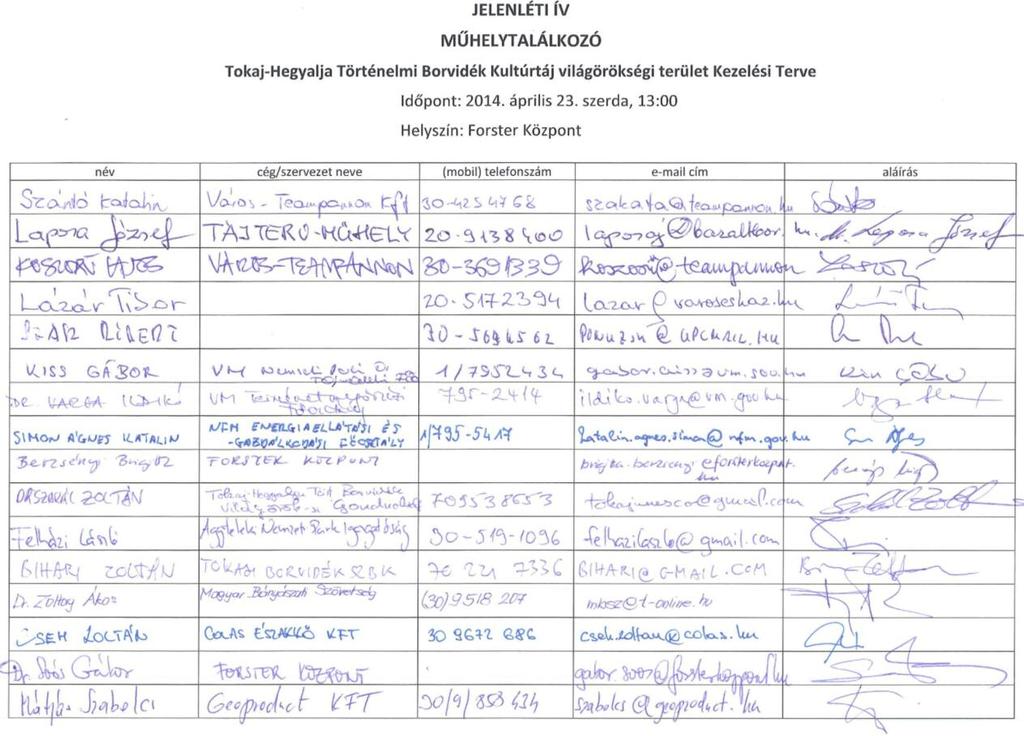 JELENLÉTI ÍV
MŰHELYTALÁLKOZÓ
Tokaj-Hegyalja Történelmi Borvidék Kultúrtáj világörökségi terület Kezelési Terve
Időpont: 2014. április 23. szerda, 13:00
Helyszín: Forster Központ
név cég/szervezet neve (mobil) telefonszám e-mail cím aláírás
Szántó Katalin Város-Teampannon Kft 30-425 4768 szakata@teampannon.hu
Laposa József TÁJTERV-MŰHELY 20-9138400 laposaj@bazaltbor.hu dr. Laposa József
KOSZORÚ LAJOS VÁROS-TEAMPANNON 30-3691339 koszoru@teampannon
Lázár Tibor 20-5172394 lazar@varoseshaz.hu
30-5694562
KISS GÁBOR VM 1/7952434
DR. VARGA ILDIKÓ VM 795-2414 ildiko.varga@vm.gov.hu
SIMON ÁGNES KATALIN NFM ENERGIAELLÁTÁSI ÉS
-GAZDÁLKODÁSI FŐOSZTÁLY 1/795-5417 katalin.agnes.simon@nfm.gov.hu
Berzsényi Brigitta FORSTER KÖZPONT brigitta.berzsenyi@forsterkozpont.
hu
ZOLTÁN Tokaj-Hegyalja Tört. Borvidék
Gondnokság 709538653 tokajunesco@gmail.com
Felházi László Aggteleki Nemzeti Park Igazgatóság 30-519-1096 felhazilaszlo@gmail.com
BIHARI ZOLTÁN TOKAJI BORVIDÉK SZBK 70 221 7336 BIHARI@G-MAIL.COM
Dr. Zoltay Ákos Magyar Bányászati Szövetség (30)9518 207 mbsz@t-online.hu
CSEH ZOLTÁN COLAS ÉSZAKKŐ KFT 30 9672 686 cseh.zoltan@colas.hu
Dr. Soós Gábor FORSTER KÖZPONT gabor.soos@forsterkozpont.hu
Mátyás Szabolcs Geoproduct KFT 30/9/853 434 szabolcs@geoproduct.hu